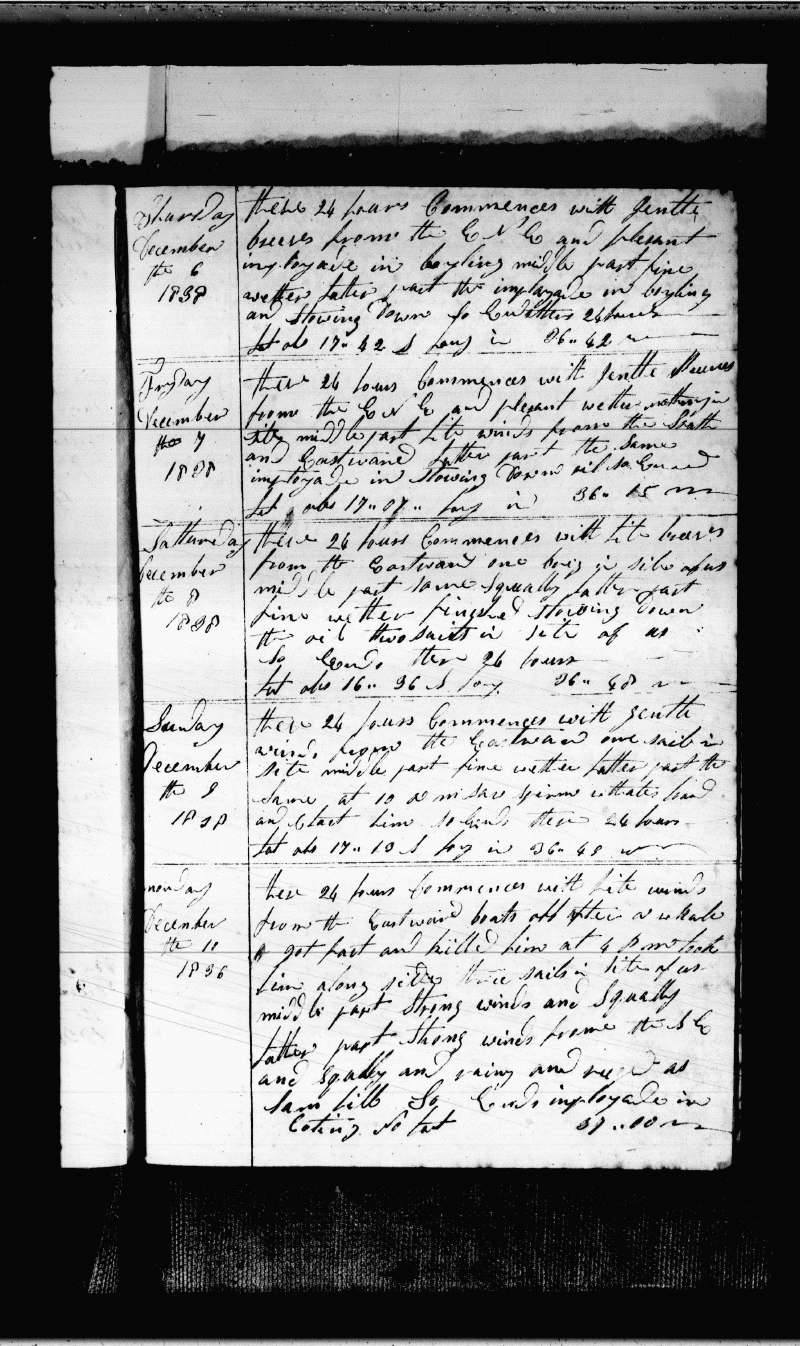 Thursday
December
the 6
1838
these 24 hours Commences with Gentle
breeses from the E N E and plesant
imployade in boyling middle part fine
wether latter part the imployade in boyling
and stowing Down So Ends thes 24 hours
Lat obs 17" 42 S Long in 36" 42
Fryday
December
the 7
1838
these 24 hours Commences with Gentle Breeses
from the E N E and plesant wether nothing in
site middle part lite winds from the South
and Eastward latter part the same
imployade in Stowing Down oil so Ends
Lat obs 17" 07" Long in 36" 15
Satturday
December
the 8
1838
these 24 hours Commences with lite breeses
from the Eastward one brig in site of us
middle part some Squally latter part
fine wether finyshed stowing down
the oil two sails in site of us
So Ends these 24 hours
Lat obs 16" 36 S Long 36" 48
Sunday
December
the 9
1838
these 24 hours Commences with gentle
winds from the Eastward one sail in
site middle part fine wether latter part the
same at 10 a m saw whales
and him so Ends these 24 hours
Lat obs 17" 10 S Long in 36" 48
monday
December
the 10
1838
these 24 hours Commences with lite winds
from the Eastward boats off after a whale
got fast and killed him at 4 P m took
him along side three sails in site of us
middle part Strong winds and Squally
latter part Strong winds frome the S E
and Squally and rainy and as
So Ends imployade in
Coting No Lat 37" 00